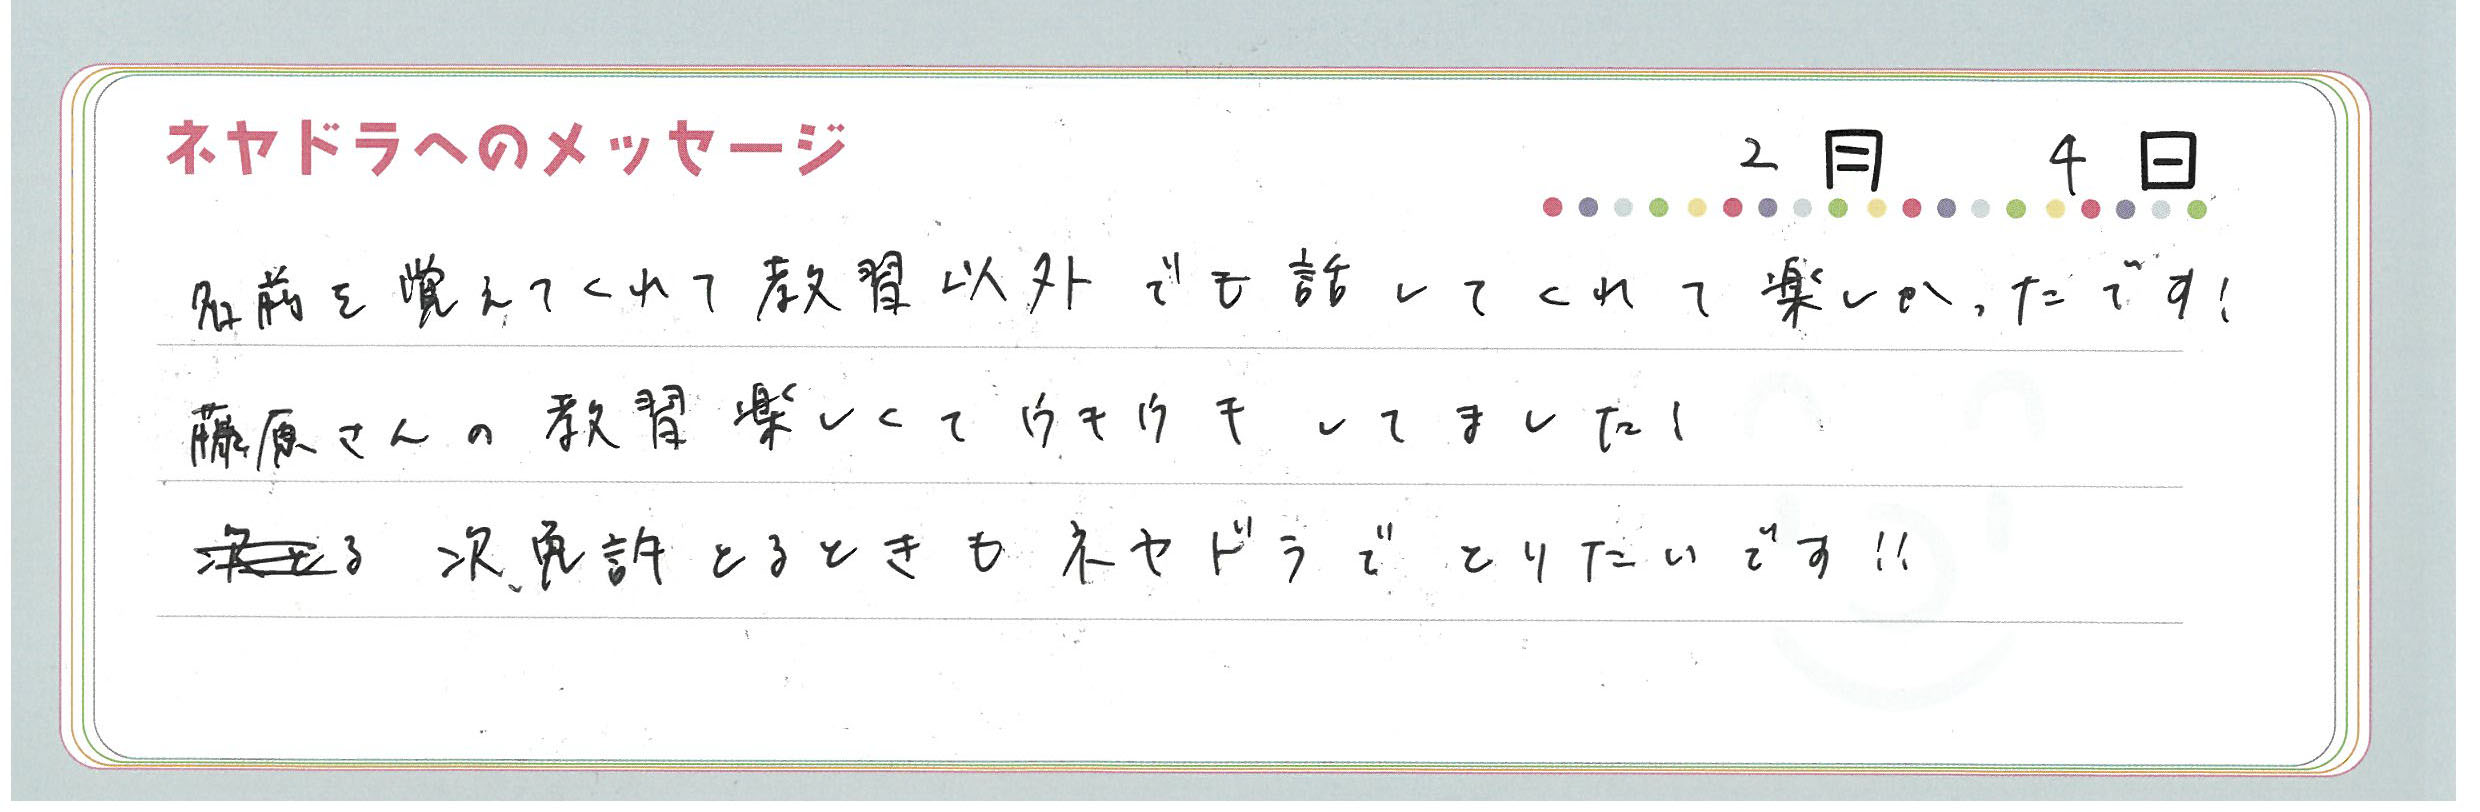 ネヤドラへのメッセージ
2月 4日
名前を覚えてくれて教習以外でも話してくれて楽しかったです!
藤原さんの教習楽しくてウキウキしてました!
る 次、免許とるときもネヤドラでとりたいです!!